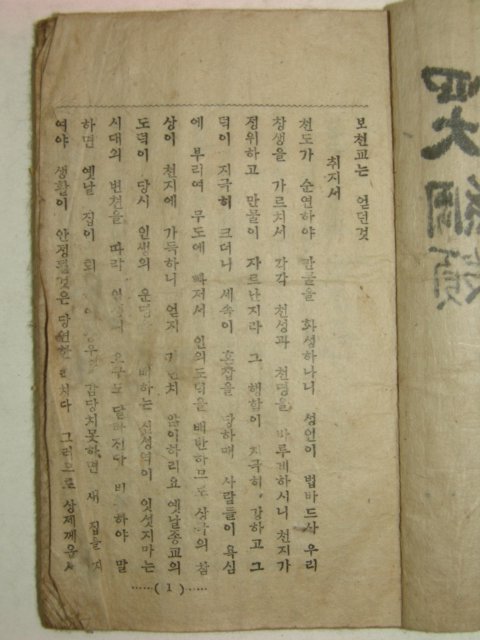 四大綱領
보천교는 언던것
취지서
천도가 순연하야 만물을 화생하나니 성인이 법바드사 우리
창생을 가르치서 각각 천성과 천명을 바루게하시니 천지가
정위하고 만물이 자르난지라 그 행함이 지극히 강하고 그
덕이 지극히 크더니 세속이 혼잡을 당하매 사람들이 욕심
에 부리여 무도에 빠저서 인의도덕을 배반하므로 상극의 참
상이 천지에 가득하니 엇지 암이하리요 옛날종교의
도력이 당시 인생의 운명 배하는 신성력이 잇섯지마는
시대의 변천을 따라 인생의 요구도 하야 말
하면 옛날 집이 감당치못하면 새 집을 지
여야 생활이 안정될것은 당연한 리치다 그러므로
……( 1 )……